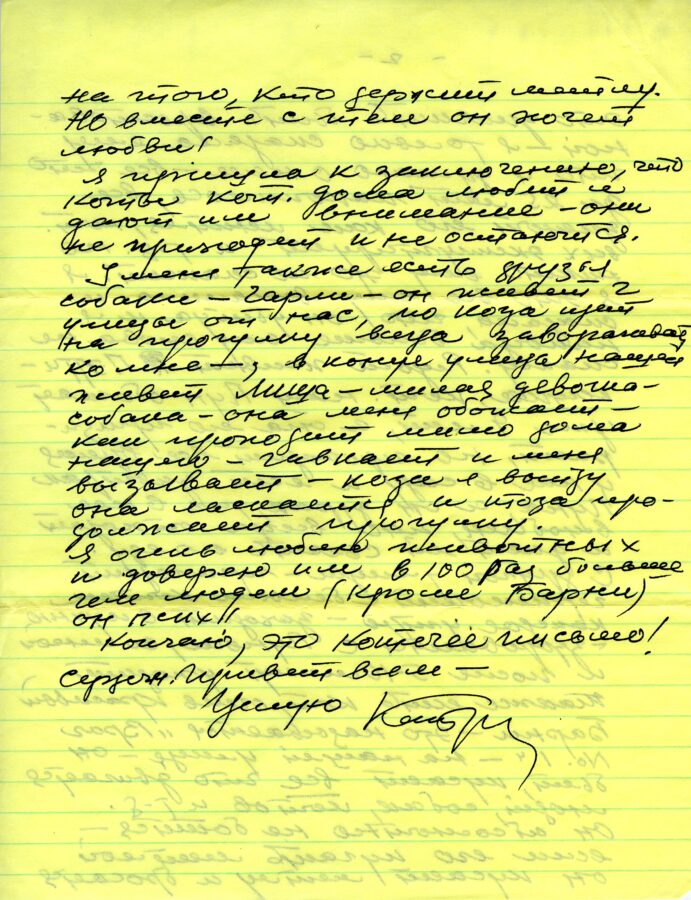 на того, кто держит метлу.
Но вместе с тем он хочет
любви!
Я пришла к заключению, что
коты кот. дома любят и
дают им внимание – они
не приходят и не остаются.
У меня также есть друзья
собаки – Чарли – он живет 2
улицы от нас, но коза идет
на прогулку всегда заворачивает
ко мне –, в конце улицы нашей
живет Миша – милая девоша-
собака – она меня обожает –
как проходит мимо дома
нашего – гавкает и меня
вызывает – коза я выйзу
она ласкается и тоза про-
должает прогулку.
Я очень люблю животных
и доверею им в 100 раз больше
чем людем (кроме Барни)
он псих!!
Кончаю, это кошечее письмо!
Сердечн. привет всем –
Целую